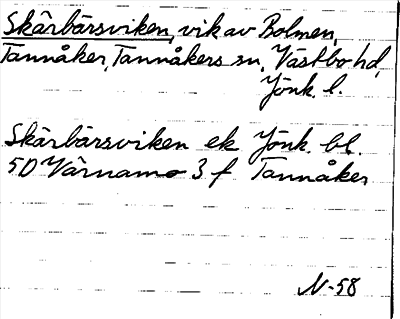 Skärbärsviken, vik av Bolmen,
Tannåker, Tannåkers sn, Västbo hd,
Jönk. l.
Skärbärsviken ek Jönk. bl.
5D Värnamo 3 f Tannåker
N-58